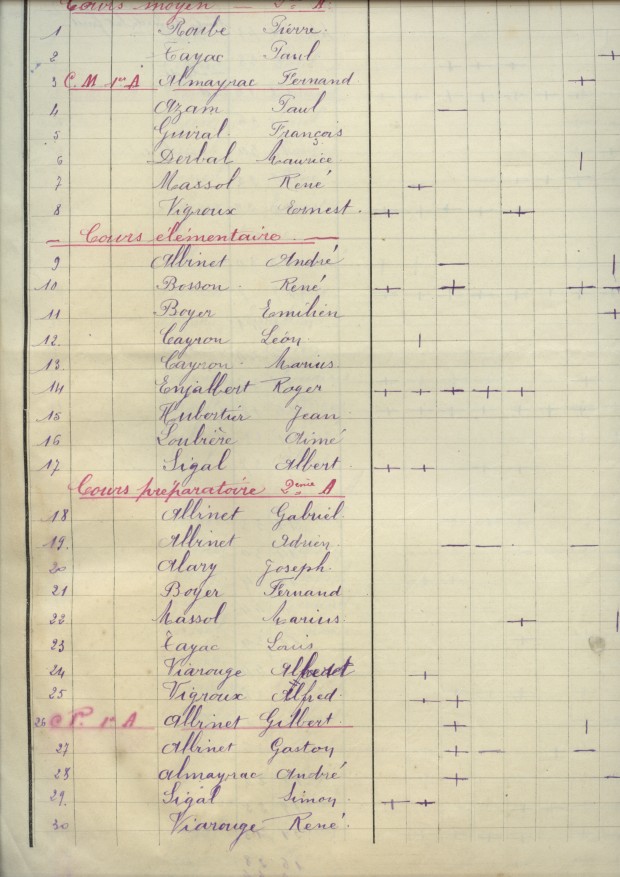 Cours moyen - 2e A.
1 Roube Pierre.
2 Cayac Paul
3 C.M 1er A Almayrac Fernand
4 Azam Paul
5 Guiral. François
6 Derbal Maurice
7 Massol René
8 Vigroux Ernest.
- Cours élémentaire. -
9 Albinet André
10 Bosson. René
11 Boyer Emilien
12. Cayron Léon
13. Cayron. Marius.
14 Enjalbert Roger
15 Hubertier Jean
16 Loubière Aimé
17 Sigal Albert.
Cours préparatoire 2ème A
18 Albinet Gabriel.
19. Albinet Adrien.
20 Alary Joseph.
21 Boyer Fernand
22. Massol Marius.
23 Cayac Louis
24 Viarouge
25 Vigroux Alfred.
26 C P. 1r A Albinet Gilbert.
27 Albinet Gaston
28 Almayrac André
29. Sigal Simon
30 Viarouge René.